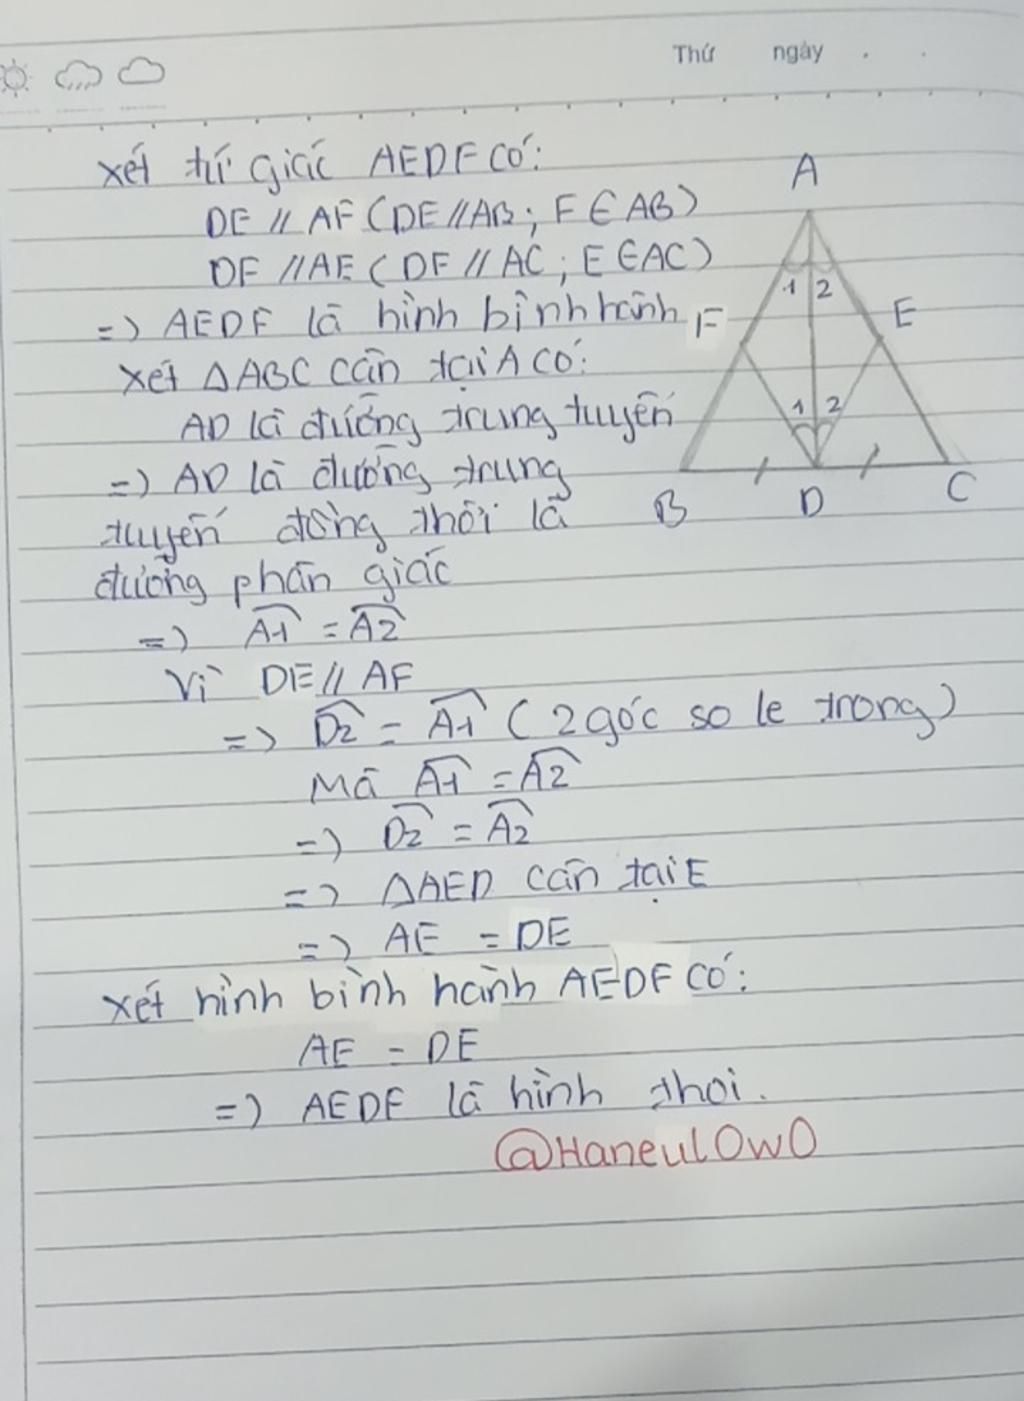 Thứ ngày . .
Xét tứ giác AEDF có:
DE // AF (DE // AB; F ∈ AB)
DF // AE (DF // AC; E ∈ AC)
=) AEDF là hình bình hành
Xét ΔABC cân tại A có:
AD là đường trung tuyến
=) AD là đường trung
tuyến đồng thời là
đường phân giác
=) Â1 = Â2
Vì DE // AF
=) D̂2 = Â1 (2 góc so le trong)
Mà Â1 = Â2
=) D̂2 = Â2
=) ΔAED cân tại E
=) AE = DE
Xét hình bình hành AEDF có:
AE = DE
=) AEDF là hình thoi.
@HaneulOwO
A
1 2
F E
1 2
B D C